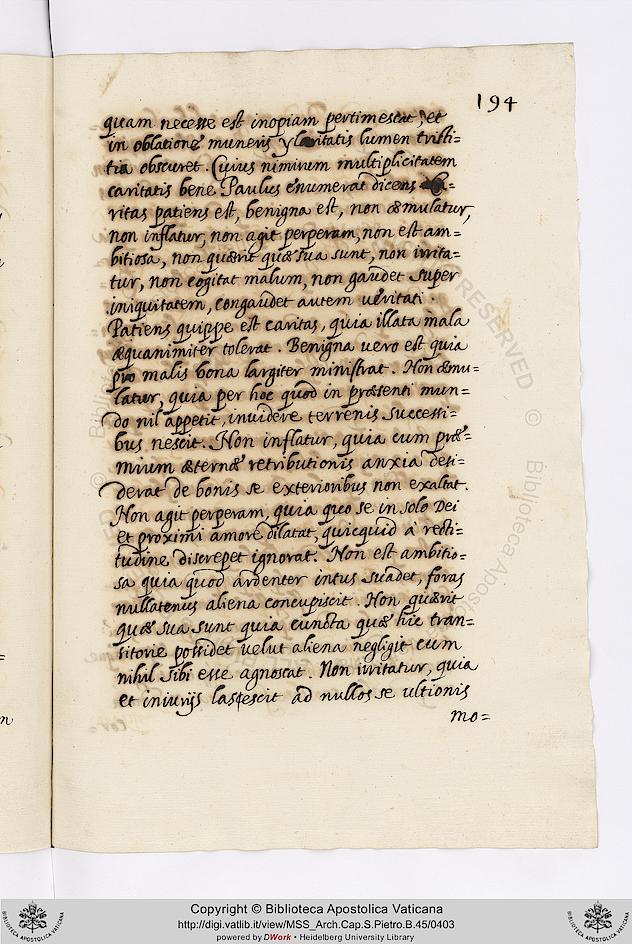 194
quam necesse est inopiam pertimescat, et
in oblatione muneris hilaritatis lumen tristi=
tia obscuret. Cuius nimirum multiplicitatem
caritatis bene Paulus enumerat dicens Ca=
ritas patiens est, benigna est, non æmulatur,
non inflatur, non agit perperam, non est am=
bitiosa, non quærit quæ sua sunt, non irrita=
tur, non cogitat malum, non gaudet super
iniquitatem, congaudet autem veritati.
Patiens quippe est caritas, quia illata mala
æquanimiter tolerat. Benigna vero est quia
pro malis bona largiter ministrat. Non æmu=
latur, quia per hoc quod in præsenti mun=
do nil appetit, invidere terrenis successi=
bus nescit. Non inflatur, quia cum præ=
mium æternæ retributionis anxia desi=
derat de bonis se exterioribus non exaltat.
Non agit perperam, quia quo se in solo Dei
et proximi amore dilatat, quicquid à recti=
tudine discrepet ignorat. Non est ambitio=
sa quia quod ardenter intus suadet, foras
nullatenus aliena concupiscit. Non quærit
quæ sua sunt quia cuncta quæ hic tran=
sitorie possidet velut aliena negligit cum
nihil sibi esse agnoscat. Non irritatur, quia
et iniurijs lascescit ad nullos se ultionis
mo=
RESERVED © Biblioteca Aposto
Copyright © Biblioteca Apostolica Vaticana
http://digi.vatlib.it/view/MSS_Arch.Cap.S.Pietro.B.45/0403
powered by DWork • Heidelberg University Library